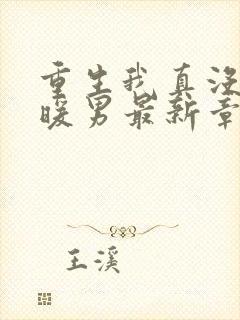 重生我真没
暖男最新章
王溪